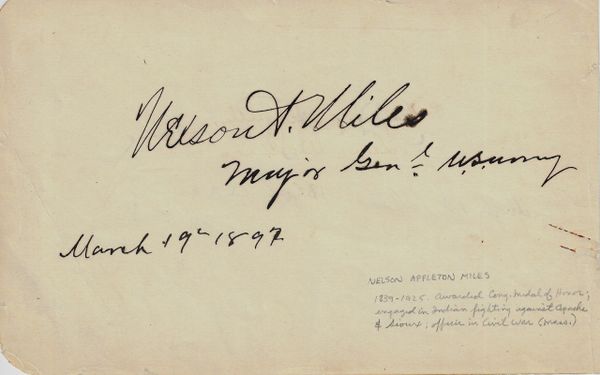 Nelson A. Miles
Major Genl. U.S. Army
March 19th 1897
NELSON APPLETON MILES
1839-1925. Awarded Cong. Medal of Honor;
engaged in Indian fighting against Apache
& Sioux; officer in Civil War (Mass.)